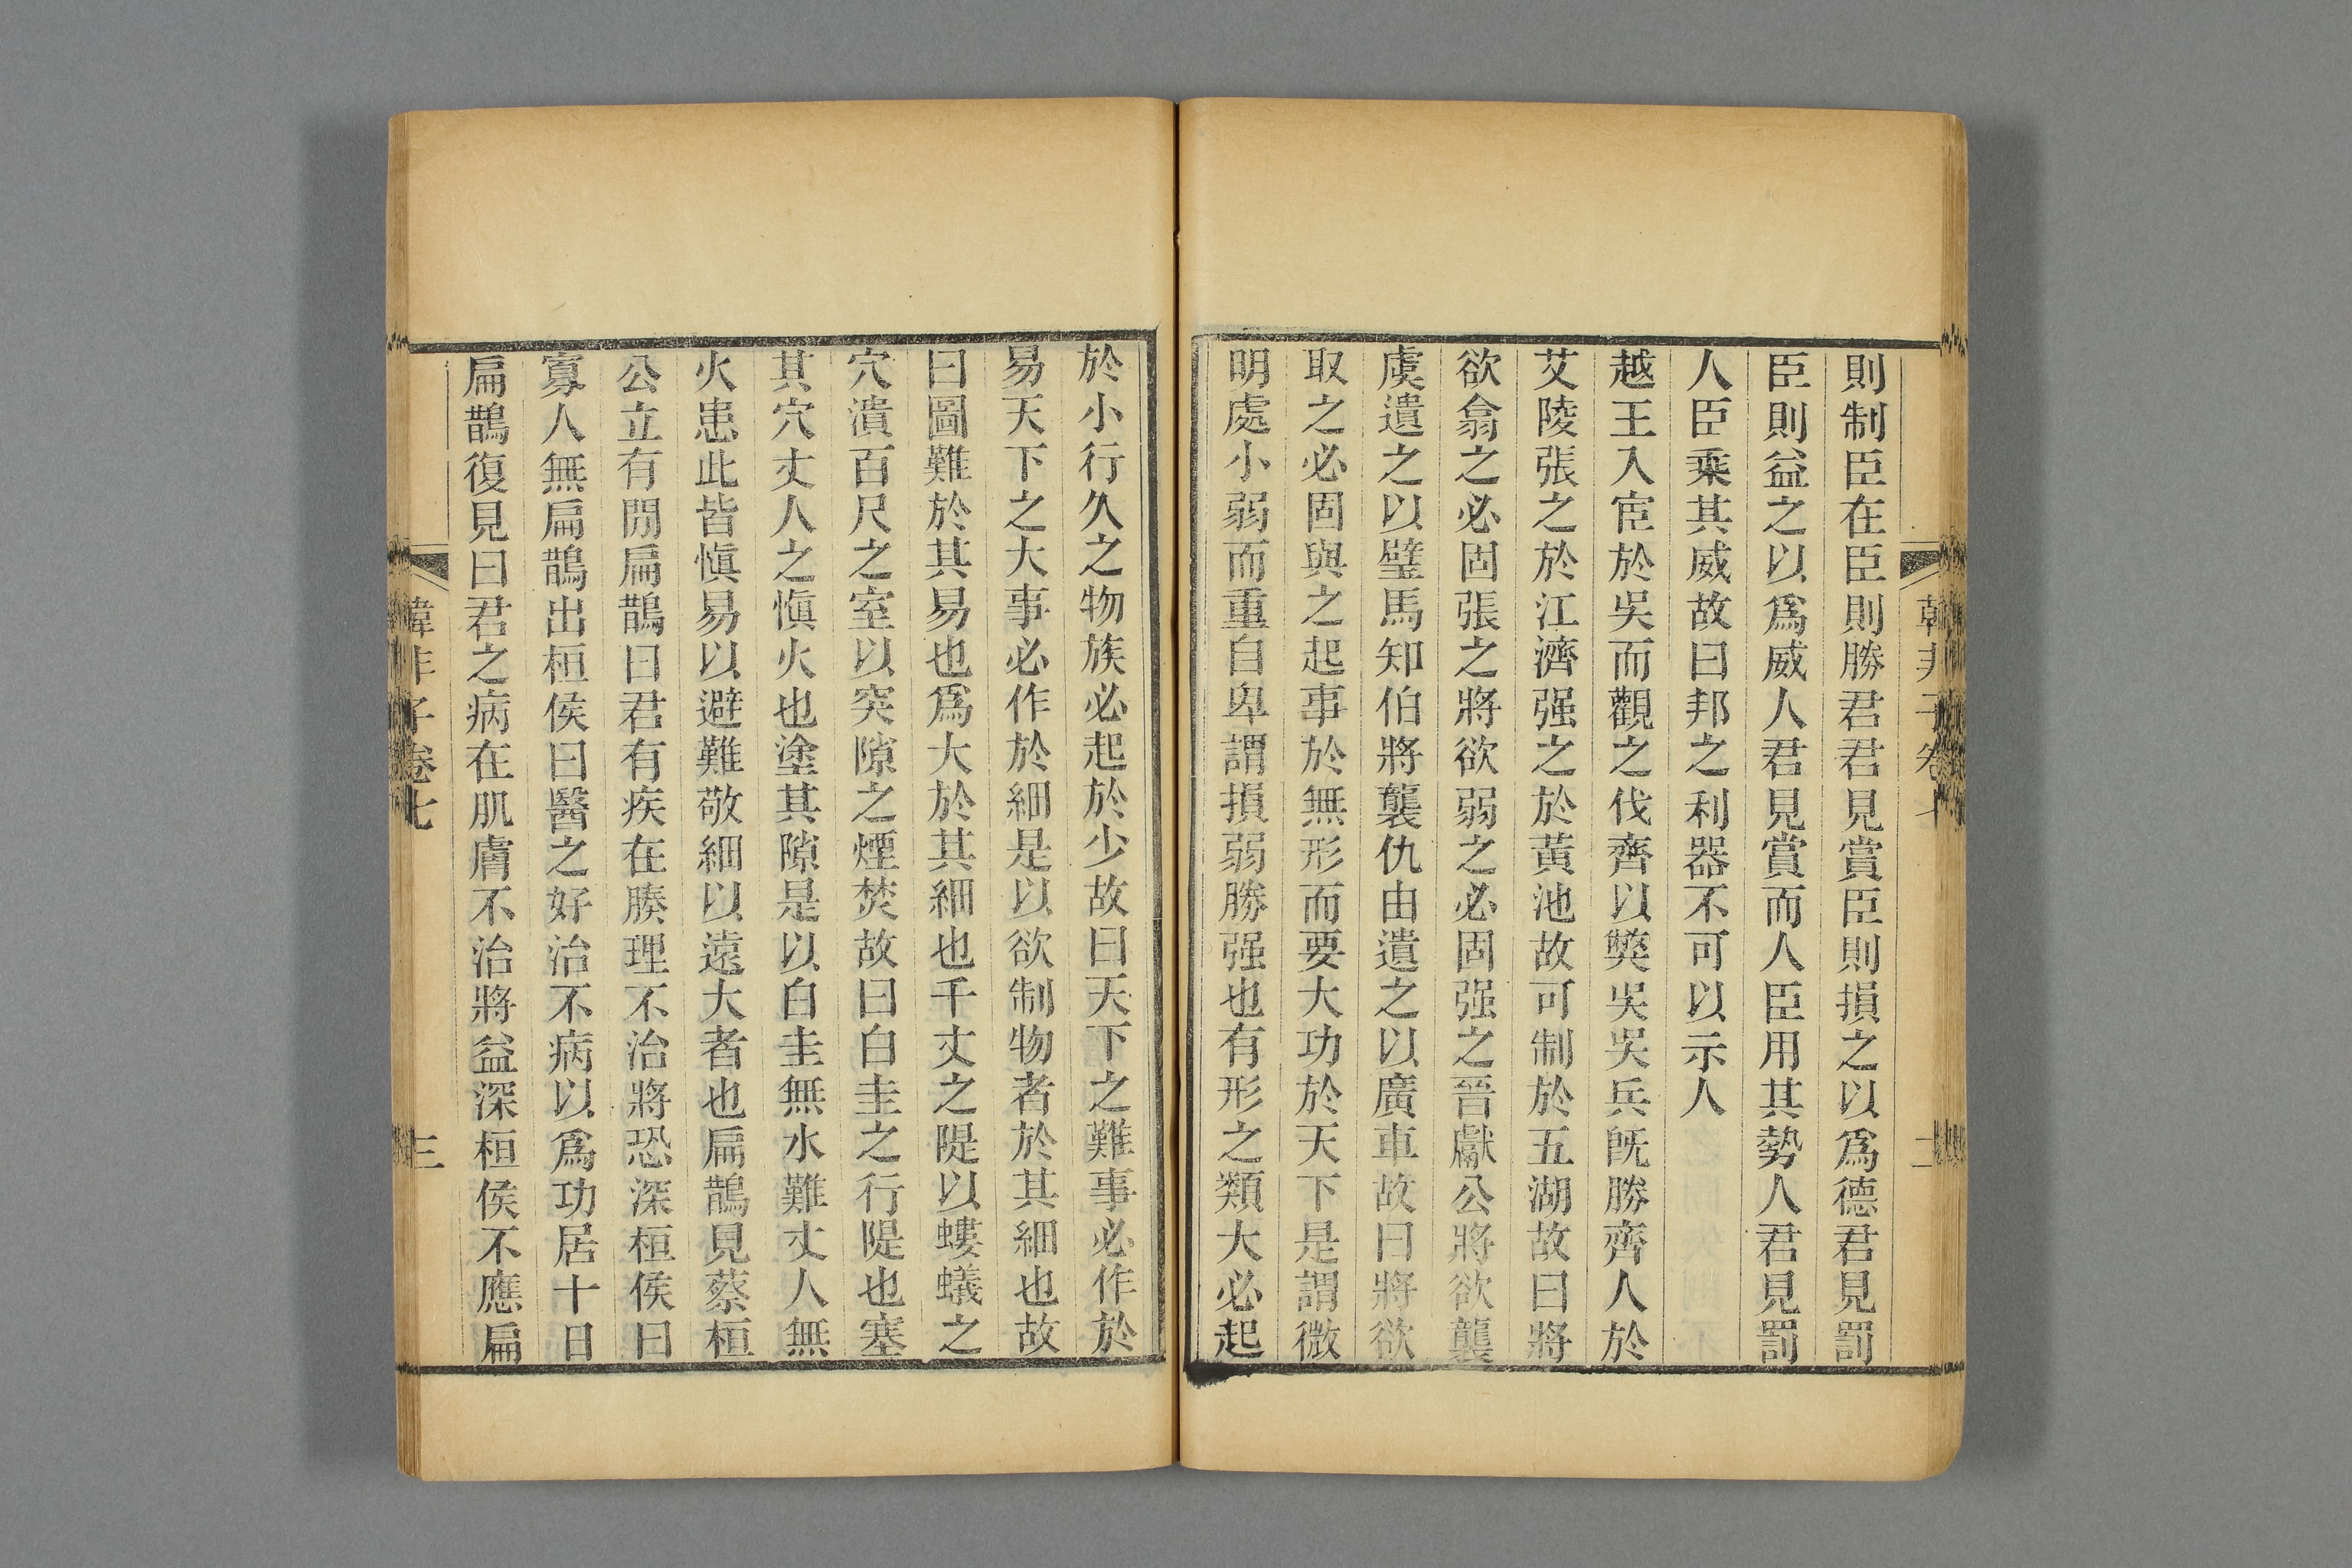 則制臣在臣則勝君君見賞臣則損之以爲德君見罰
臣則益之以爲威人君見賞而人臣用其勢人君見罰
人臣乘其威故曰邦之利器不可以示人
越王入宦於吳而觀之伐齊以獘吳吳兵旣勝齊人於
艾陵張之於江濟强之於黃池故可制於五湖故曰將
欲翕之必固張之將欲弱之必固强之晉獻公將欲襲
虞遺之以璧馬知伯將襲仇由遺之以廣車故曰將欲
取之必固與之起事於無形而要大功於天下是謂微
明處小弱而重自卑謂損弱勝强也有形之類大必起
於小行久之物族必起於少故曰天下之難事必作於
易天下之大事必作於細是以欲制物者於其細也故
曰圖難於其易也爲大於其細也千丈之隄以螻蟻之
穴潰百尺之室以突隙之煙焚故曰白圭之行隄也塞
其穴丈人之愼火也塗其隙是以白圭無水難丈人無
火患此皆愼易以避難敬細以遠大者也扁鵲見蔡桓
公立有閒扁鵲曰君有疾在腠理不治將恐深桓侯曰
寡人無扁鵲出桓侯曰醫之好治不病以爲功居十日
扁鵲復見曰君之病在肌膚不治將益深桓侯不應扁
韓非子卷七
三